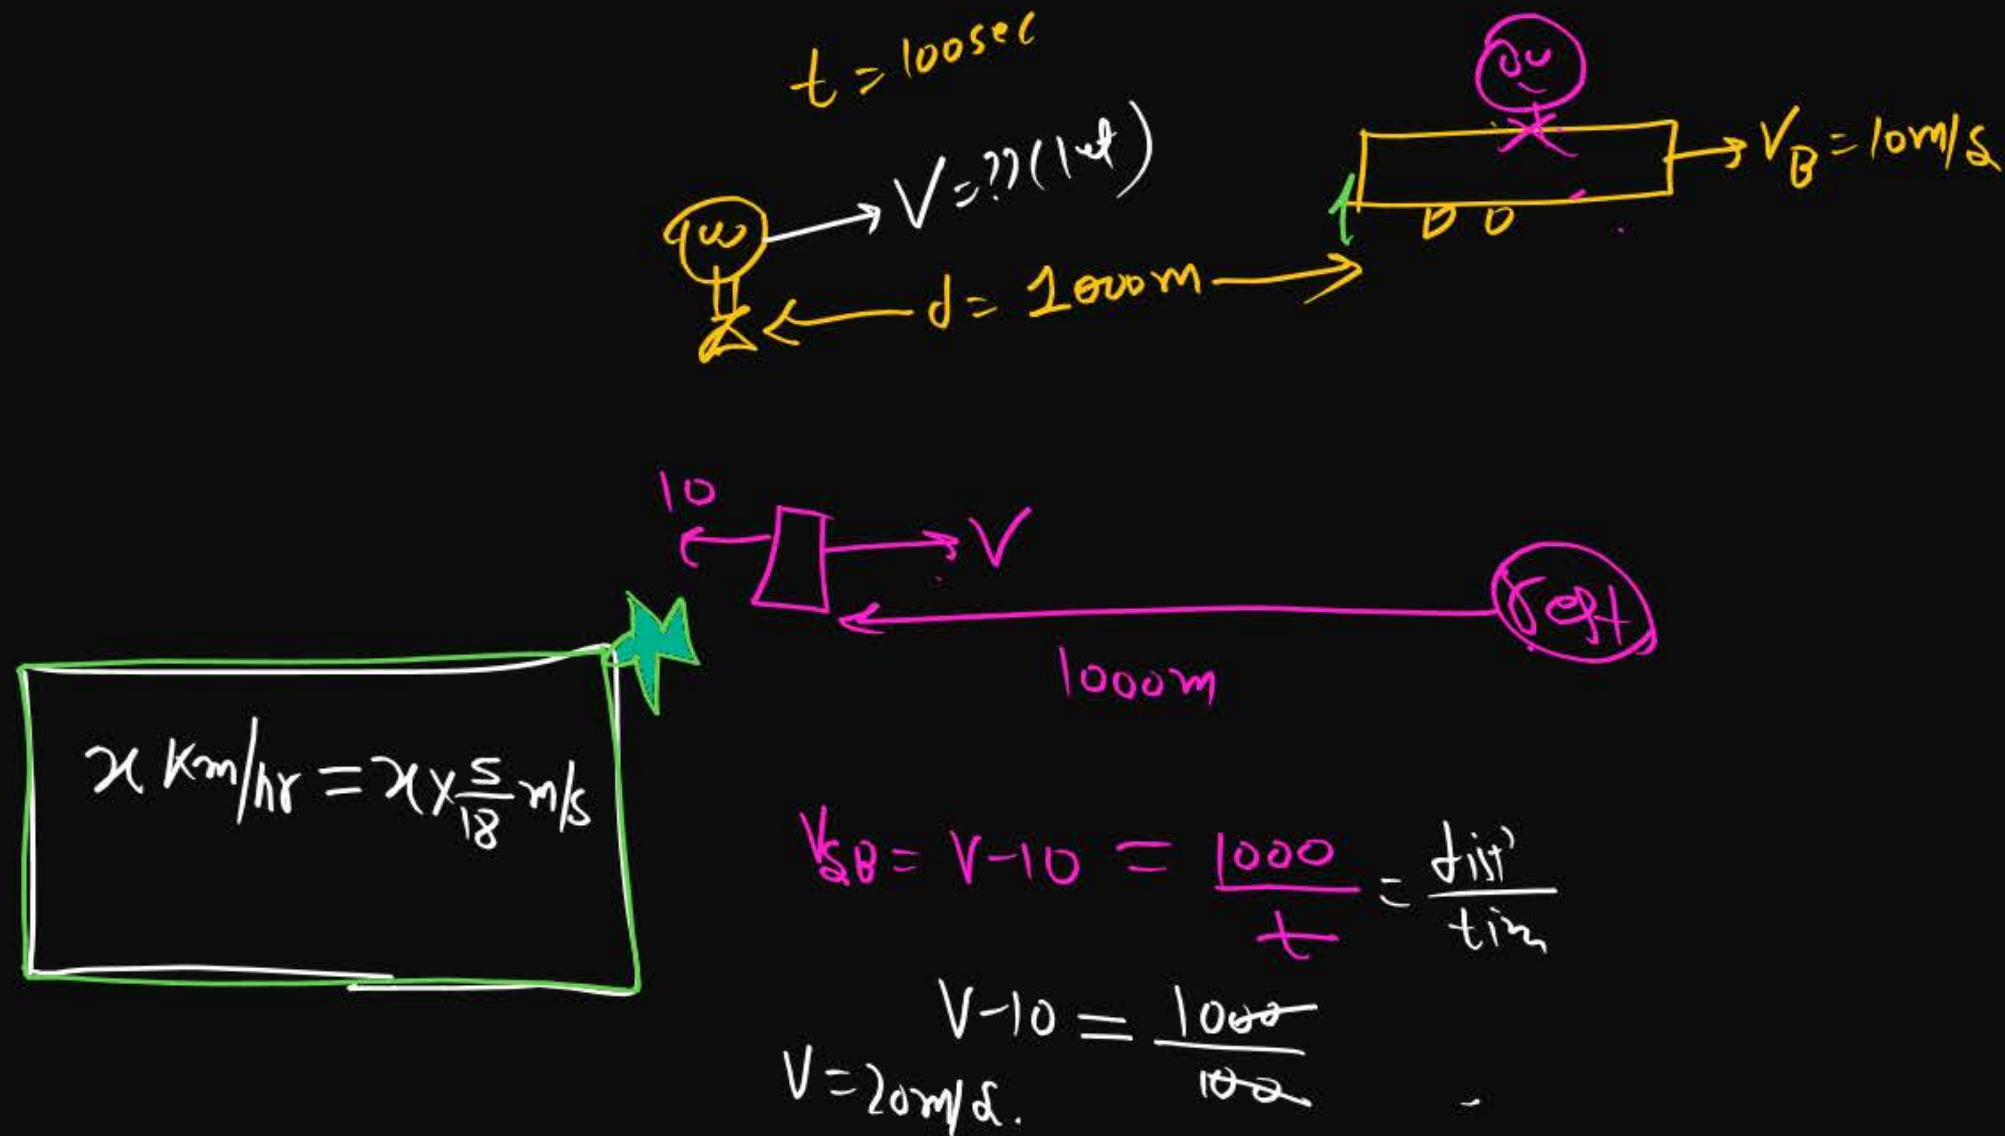 t = 100sec
V = ?? (let)
V_B = 10m/s
d = 1000m
10
V
rest
1000m
x Km/hr = x × 5/18 m/s
V_SB = V-10 = 1000/t = dist/tim
V-10 = 1000/100
V = 20m/s.